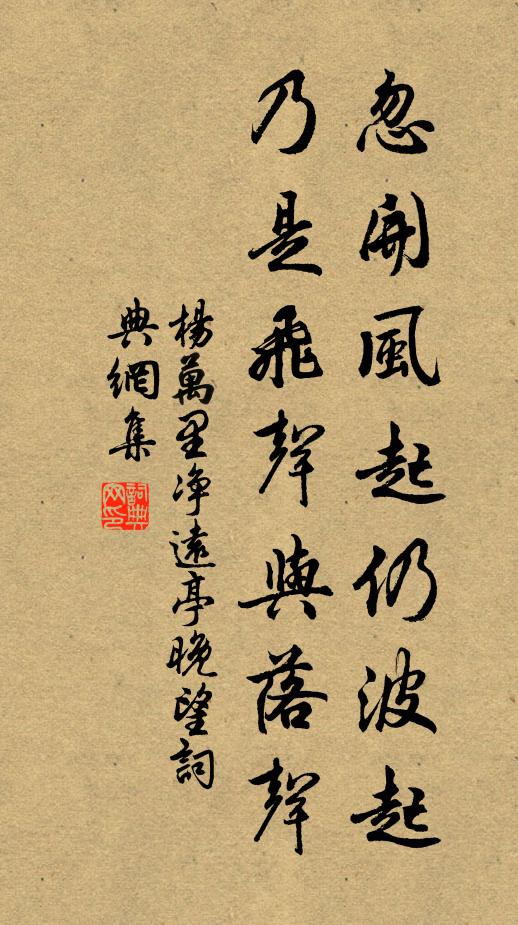 忽開風起仍波起
乃是飛聲與落聲
楊萬里淨遠亭晚望詞
典網集
詞典
网印